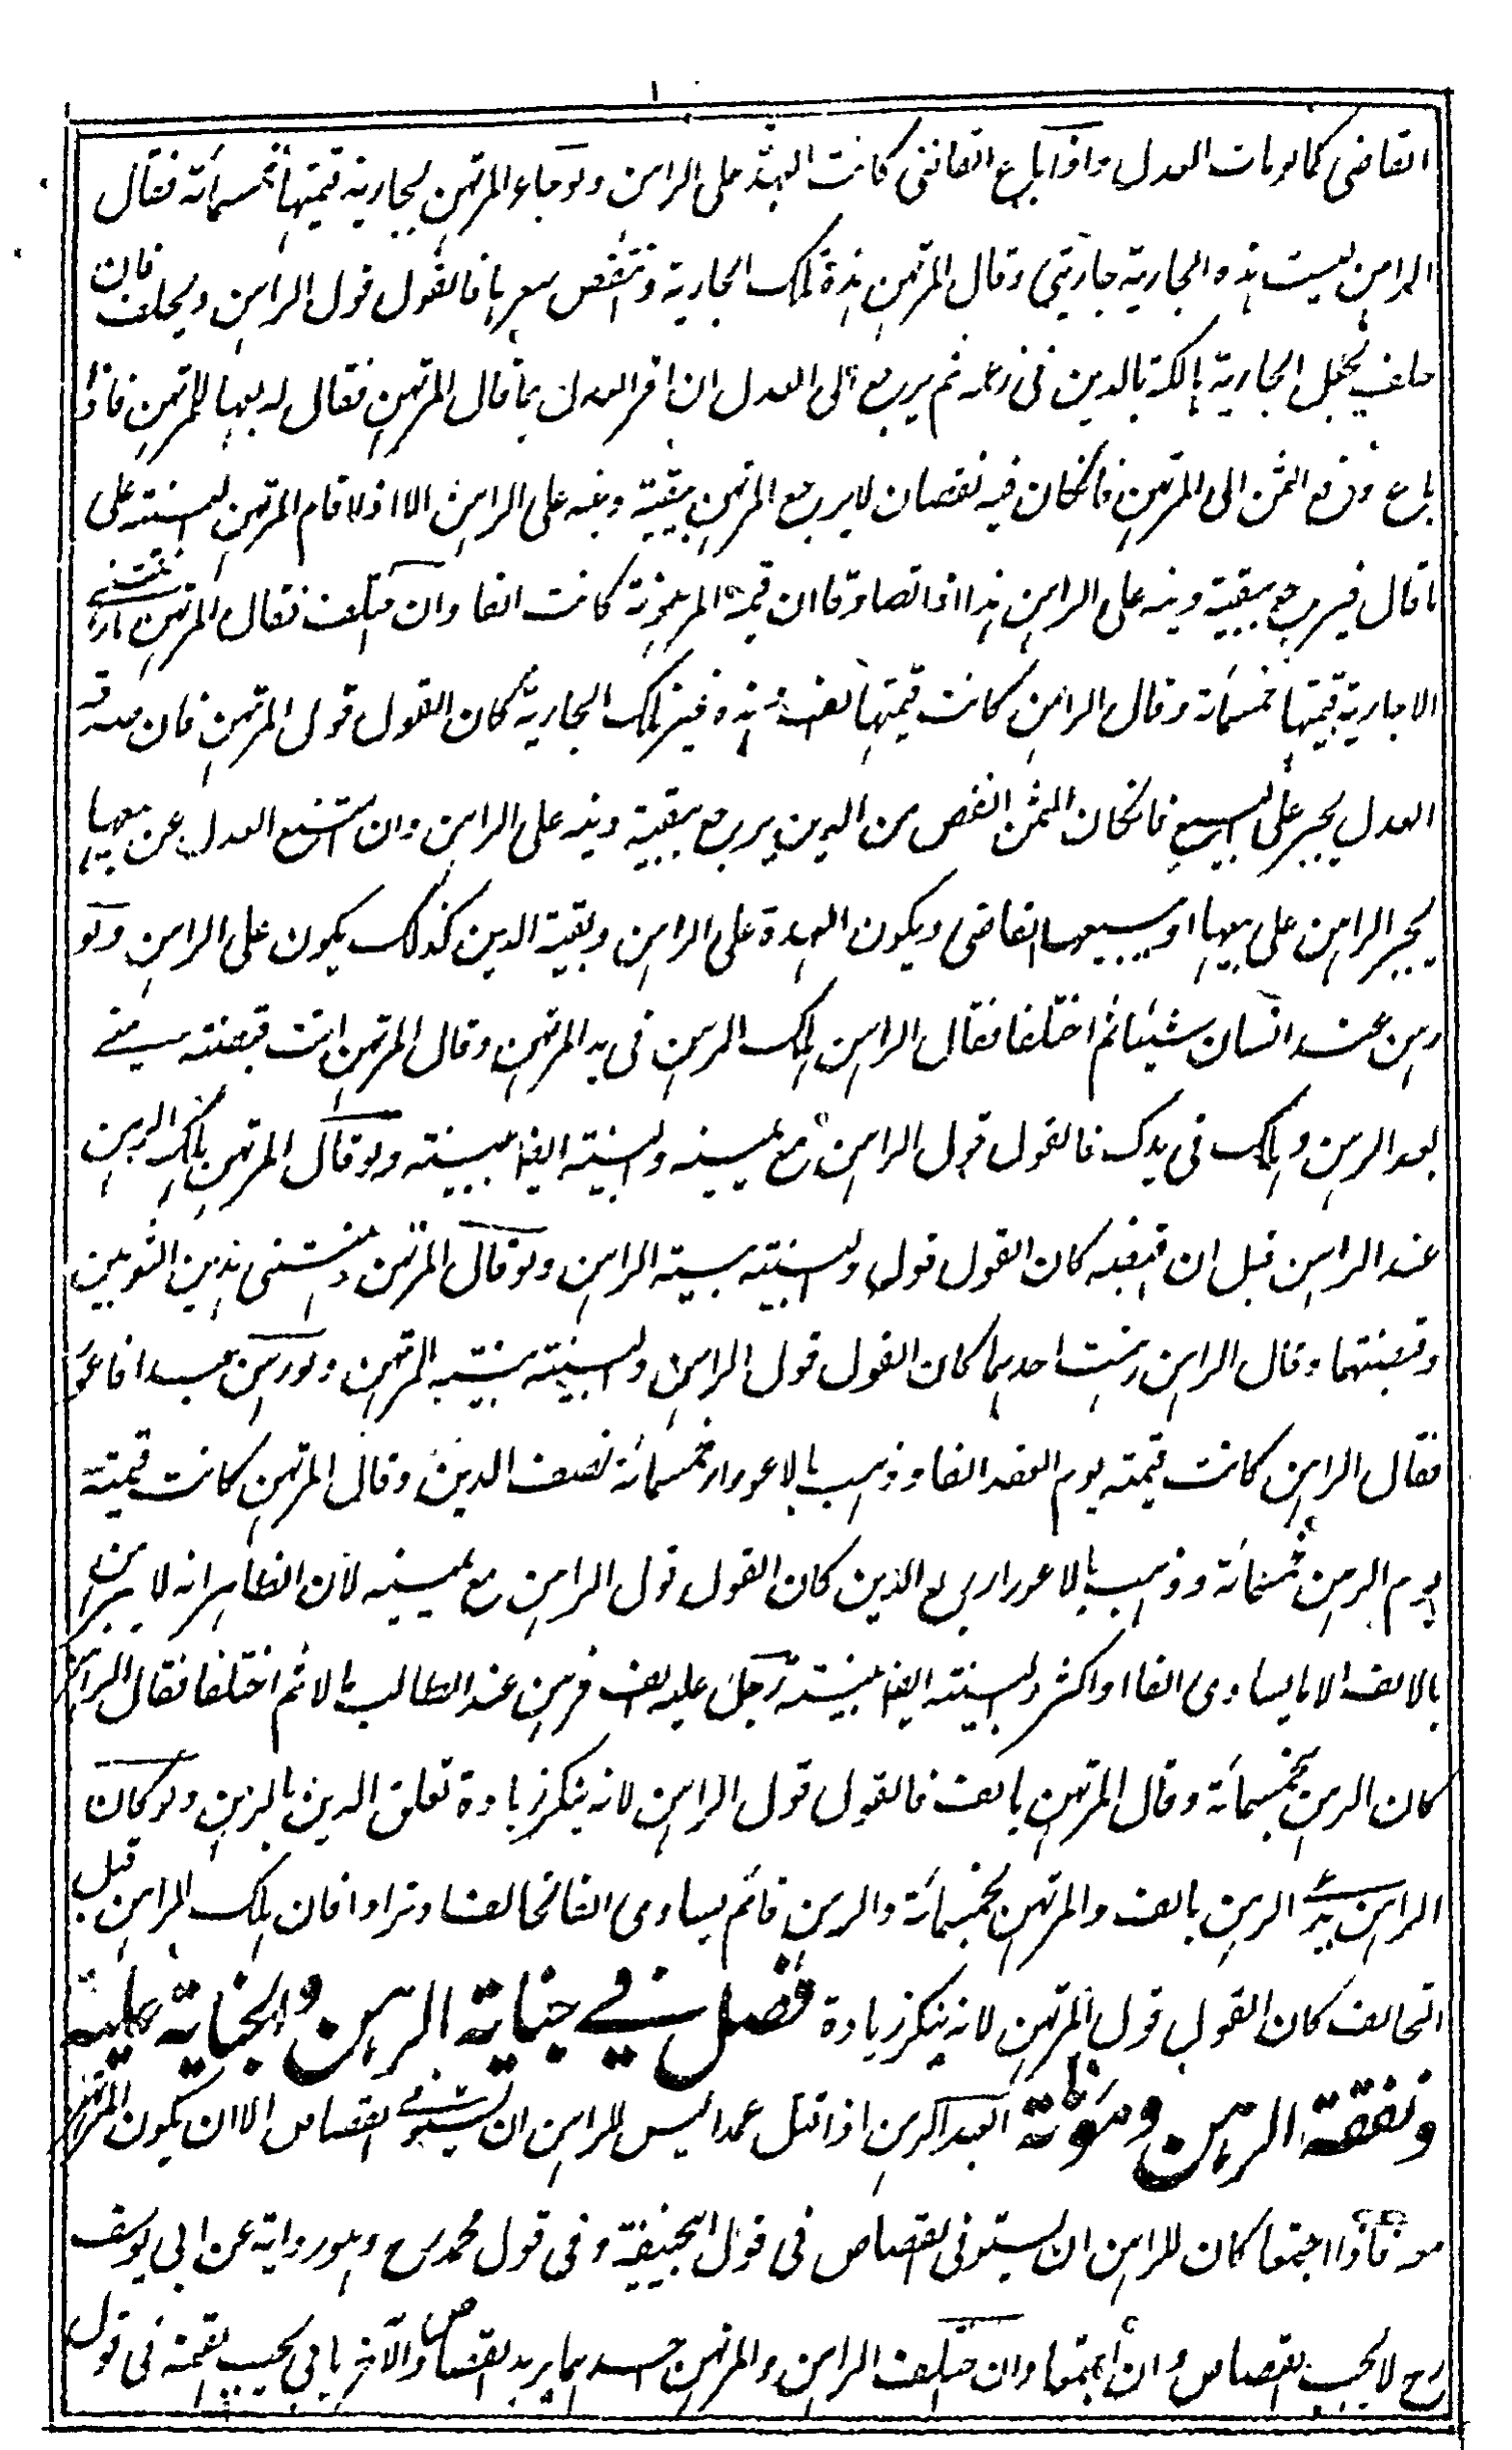 القاضى كما لو مات العدل واذا باع القاضى كانت العهدة على الراهن ولو جاء المرتهن بجارية قيمتها خمسمائة فقال
الراهن ليست هذه الجارية جاريتي وقال المرتهن هذه تلك الجارية وانتقص سعرها فالقول قول الراهن ويحلف فان
حلف تجعل الجارية هالكة بالدين فى زعمه ثم يرجع الى العدل ان اقر العدل بما قال المرتهن فقال له بعها للمرتهن فاذا
باع ودفع الثمن الى المرتهن فانكان فيه نقصان لا يرجع المرتهن ببقية دينه على الراهن الا اذا اقام المرتهن البينة على
ما قال فيرجع ببقية دينه على الراهن هذا اذا تصادقا ان قيمة المرهونة كانت الفا وان اختلف فقال المرتهن ما رهنتني
الا جارية قيمتها خمسمائة وقال الراهن كانت قيمتها الف وهذه غير تلك الجارية كان القول قول المرتهن فان صدقه
العدل يجبر على البيع فانكان الثمن انقص من الدين يرجع ببقية دينه على الراهن وان امتنع العدل عن بيعها
يجبر الراهن على بيعها او يبيعها القاضى ويكون العهدة على الراهن وبقية الدين كذلك يكون على الراهن ولو
رهن عند انسان شيئا ثم اختلفا فقال الراهن هلك الرهن فى يد المرتهن وقال المرتهن انت قبضته منى
بعد الرهن وهلك فى يدك فالقول قول الراهن مع يمينه والبينة ايضا بينته ولو قال المرتهن هلك الرهن
عند الراهن قبل ان اقبضه كان القول قوله والبينة بينة الراهن ولو قال المرتهن رهنتنى هذين الثوبين
وقبضتهما وقال الراهن رهنت احدهما كان القول قول الراهن والبينة بينة المرتهن ولو رهن عبدا فاعور
فقال الراهن كانت قيمته يوم العقد الفا وذهب بالاعورار خمسمائة نصف الدين وقال المرتهن كانت قيمته
يوم الرهن خمسمائة وذهب بالاعورار ربع الدين كان القول قول الراهن مع يمينه لان الظاهر انه لا يرهن
بالالف الا ما يساوى الفا او اكثر والبينة ايضا بينته رجل عليه الف فرهن عند الطالب مالا ثم اختلفا فقال الراهن
كان الرهن بخمسمائة وقال المرتهن بالف فالقول قول الراهن لانه ينكر زيادة تعلق الدين بالرهن ولو كان
الراهن يدعى الرهن بالف والمرتهن بخمسمائة والرهن قائم يساوى الفا تحالفا وترادا فان هلك الراهن قبل
التحالف كان القول قول المرتهن لانه ينكر زيادة فصل في جناية الرهن والجناية عليه
ونفقة الرهن ومؤنته العبد الرهن اذا قتل عمدا ليس للراهن ان يستوفى القصاص الا ان يكون المرتهن
معه فاذا اجتمعا كان للراهن ان يستوفى القصاص فى قول ابيحنيفة وفى قول محمد رح وهو رواية عن ابى يوسف
رح لا يجب القصاص وان اجتمعا وان اختلف الراهن والمرتهن احدهما يريد القصاص والآخر يابى يجب القيمة فى قول